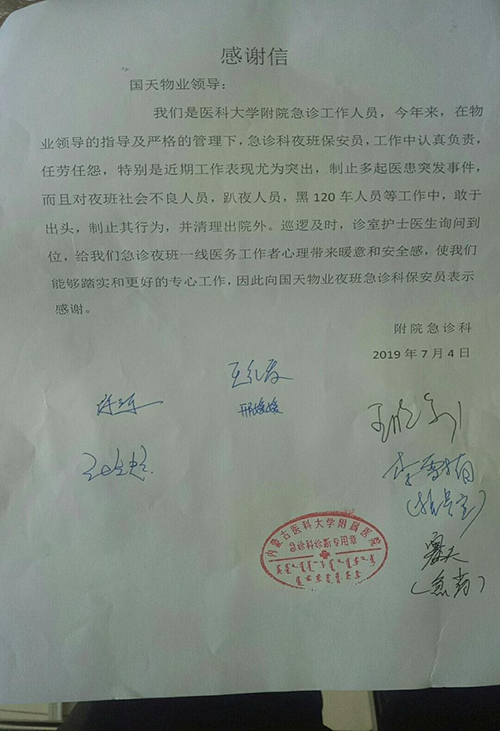 感谢信
国天物业领导：
我们是医科大学附院急诊工作人员，今年来，在物
业领导的指导及严格的管理下，急诊科夜班保安员，工作中认真负责，
任劳任怨，特别是近期工作表现尤为突出，制止多起医患突发事件，
而且对夜班社会不良人员，趴夜人员，黑 120 车人员等工作中，敢于
出头，制止其行为，并清理出院外。巡逻及时，诊室护士医生询问到
位，给我们急诊夜班一线医务工作者心理带来暖意和安全感，使我们
能够踏实和更好的专心工作，因此向国天物业夜班急诊科保安员表示
感谢。
附院急诊科
2019 年 7 月 4 日
内蒙古医科大学附属医院
急诊科诊断专用章